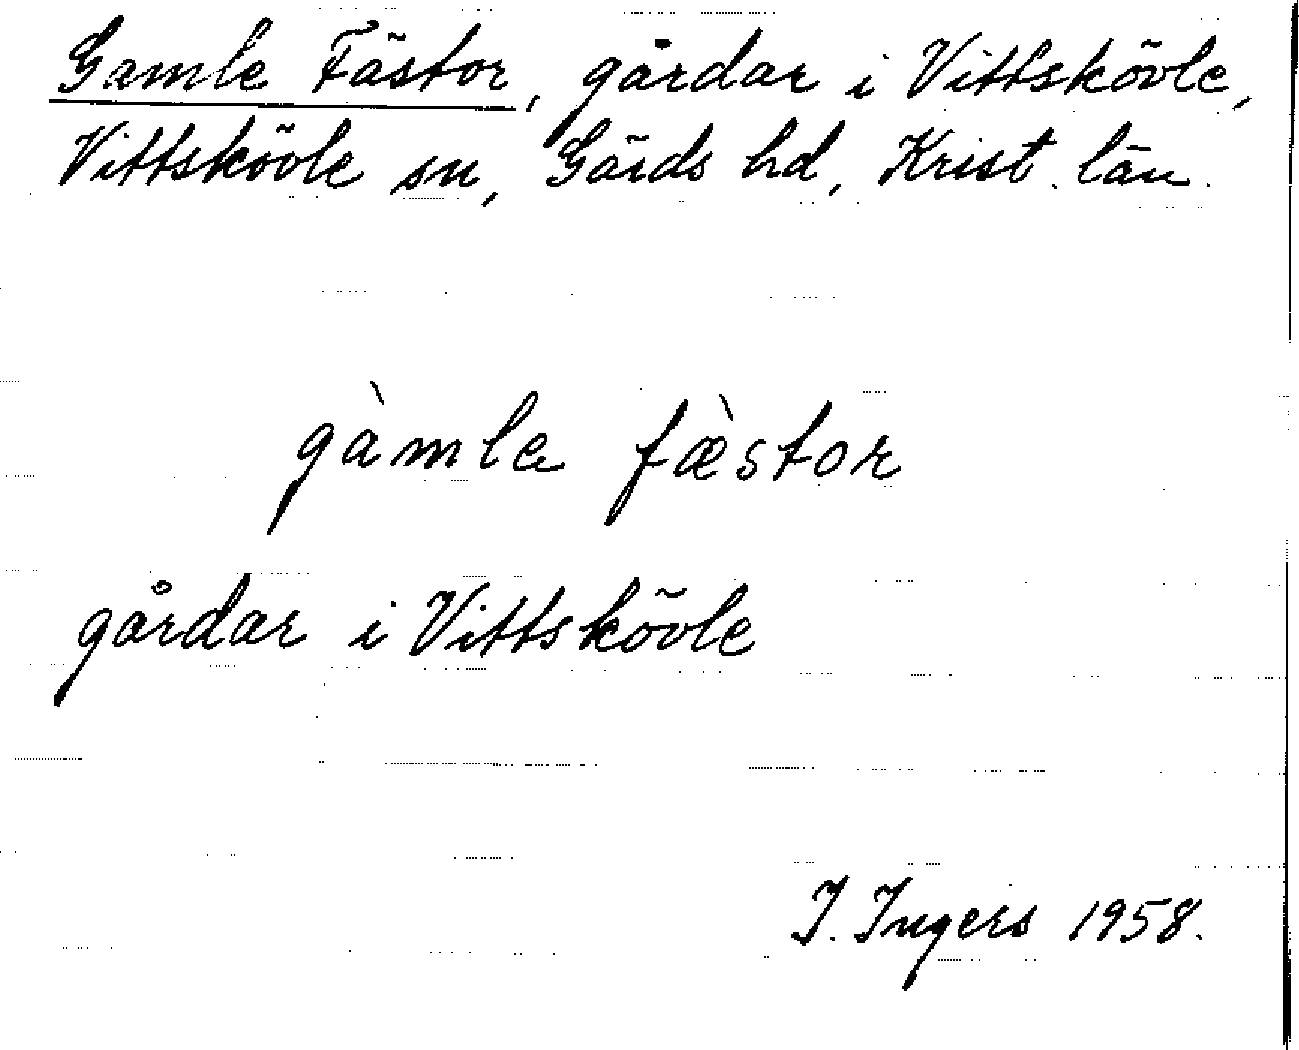 Gamle Fästor, gårdar i Vittskövle,
Vittskövle sn, Gärds hd, Krist. län.
gàmla fæ̀stor
gårdar i Vittskövle
I. Ingers 1958.